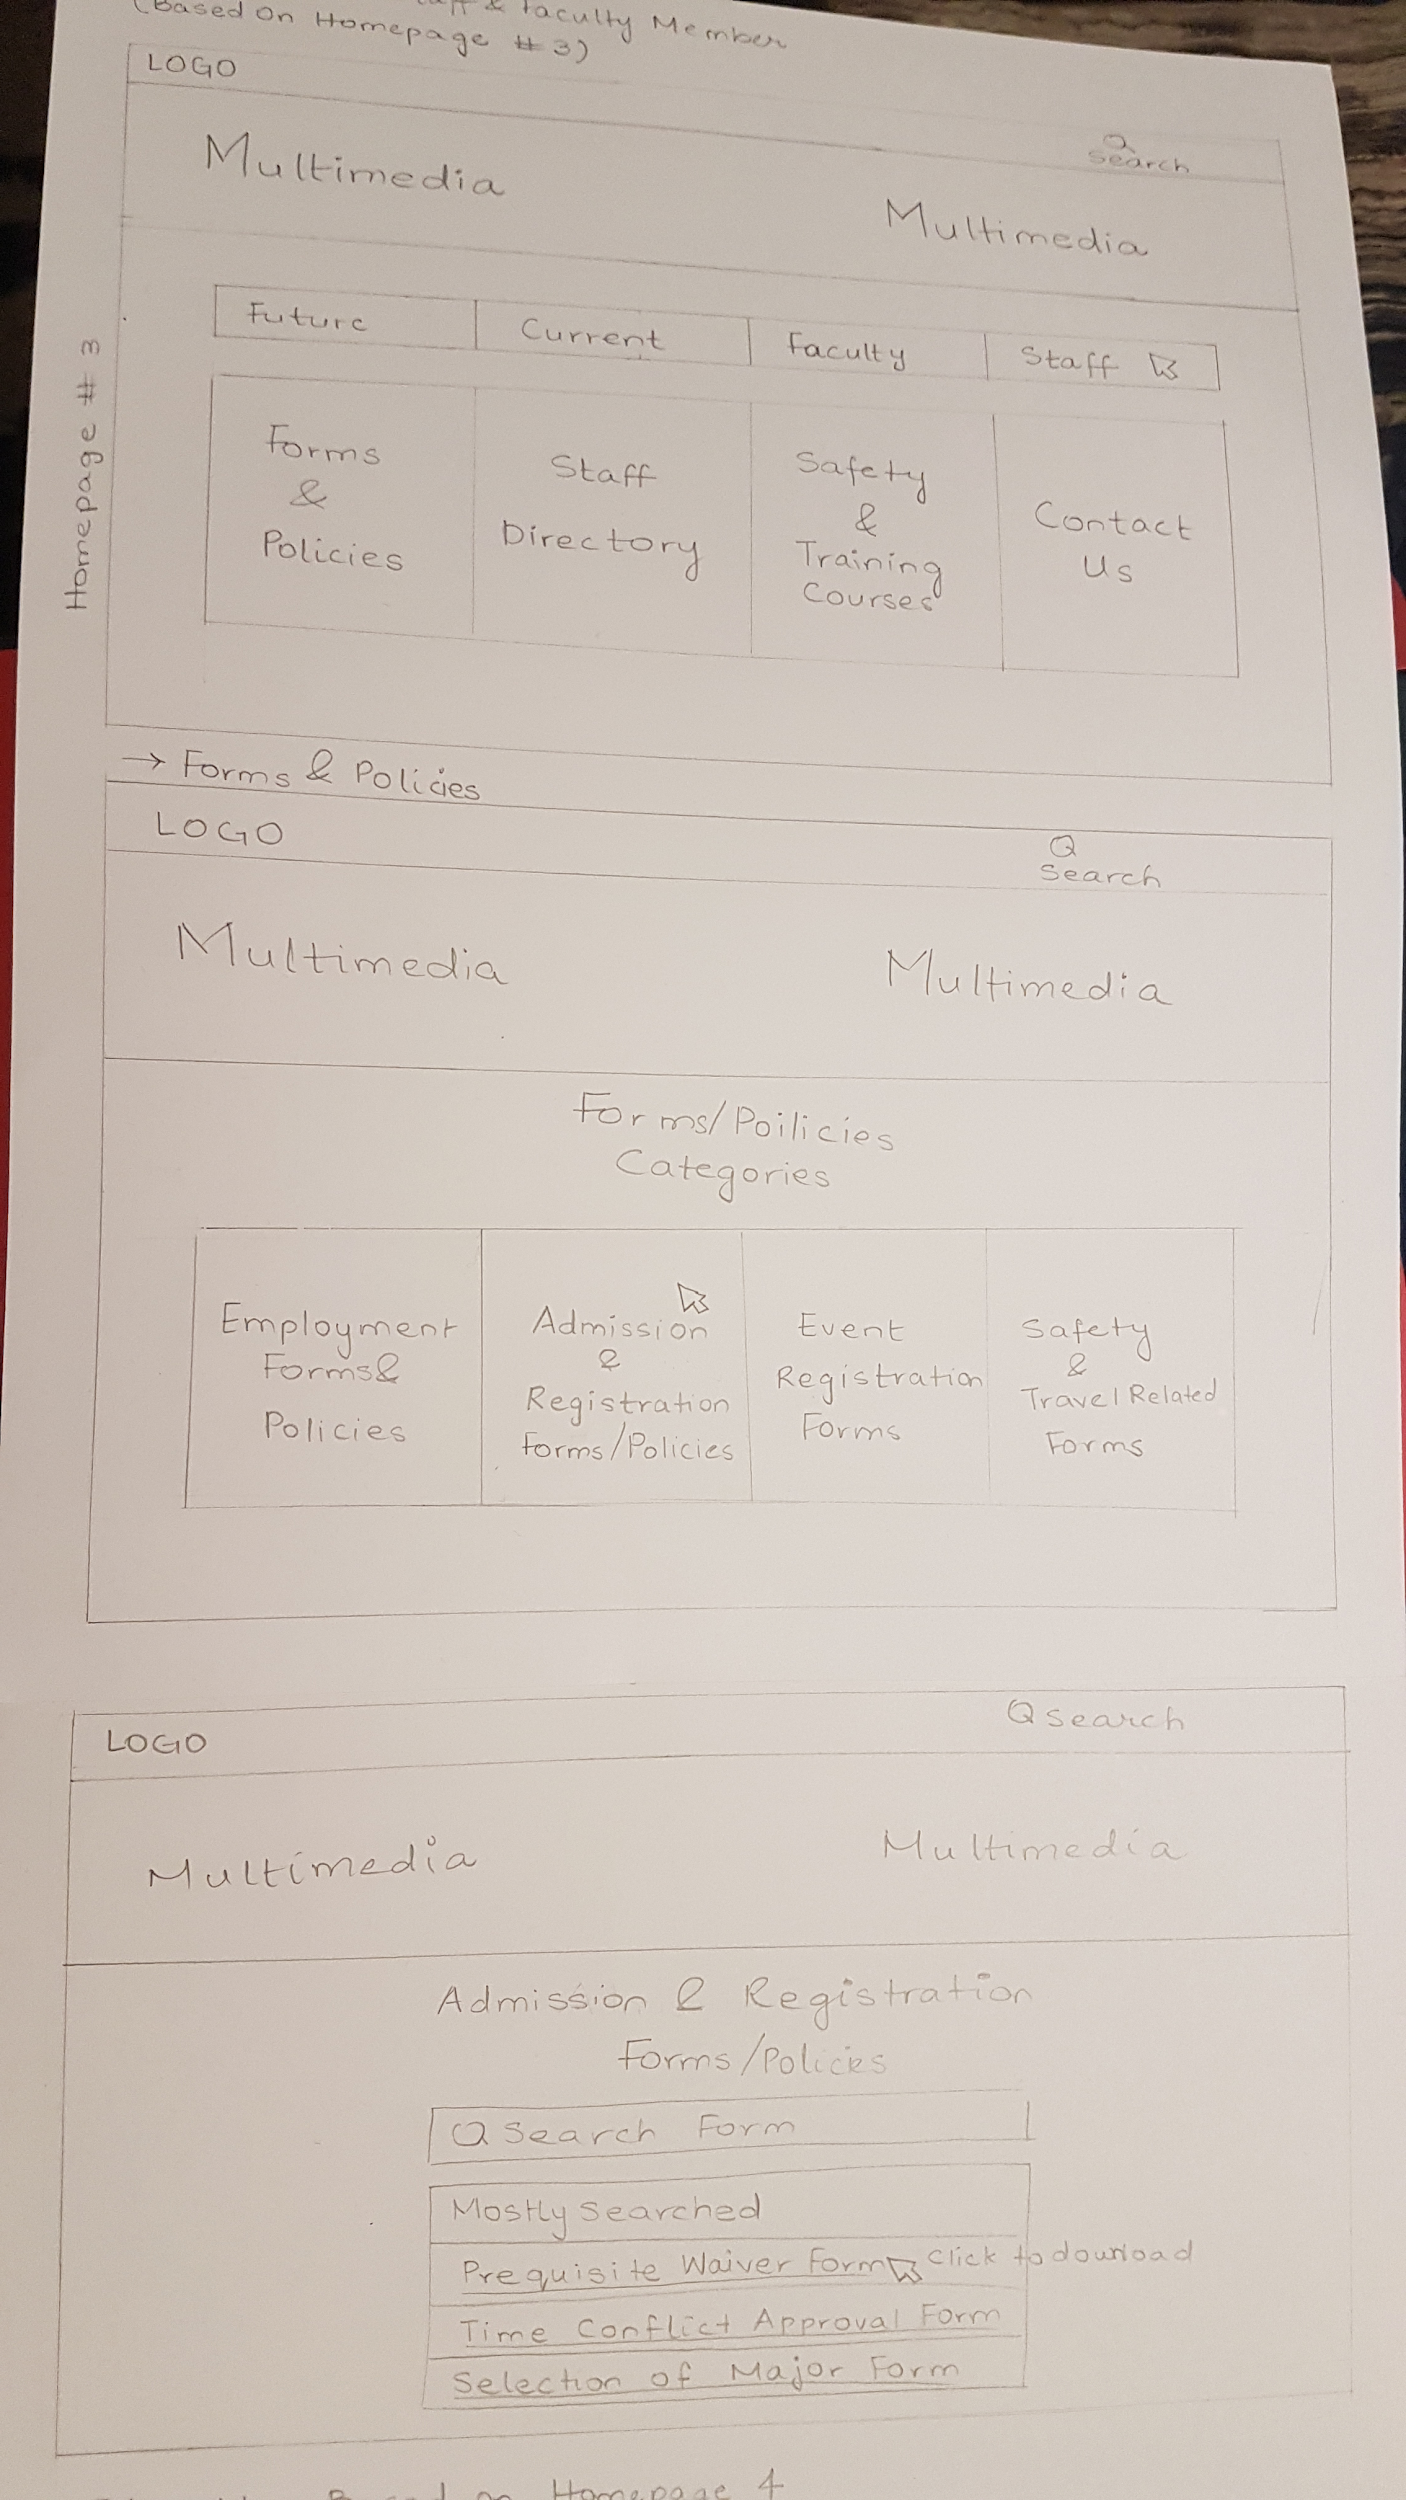 & Faculty Member
(Based On Homepage # 3)
LOGO
Search
Multimedia
Multimedia
Homepage # 3
Future
Current
Faculty
Staff
Forms
&
Policies
Staff
Directory
Safety
&
Training
Courses
Contact
Us
→ Forms & Policies
LOGO
Search
Multimedia
Multimedia
Forms/Poilicies
Categories
Employment
Forms&
Policies
Admission
&
Registration
Forms/Policies
Event
Registration
Forms
Safety
&
Travel Related
Forms
LOGO
Search
Multimedia
Multimedia
Admission & Registration
Forms/Policies
Search Form
Mostly Searched
Prequisite Waiver Form Click to download
Time Conflict Approval Form
Selection of Major Form
Based on Homepage 4